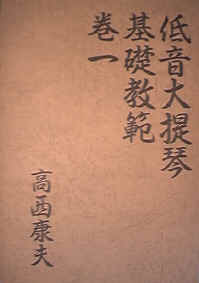 低音大提琴
基礎教範
巻一
高西康夫